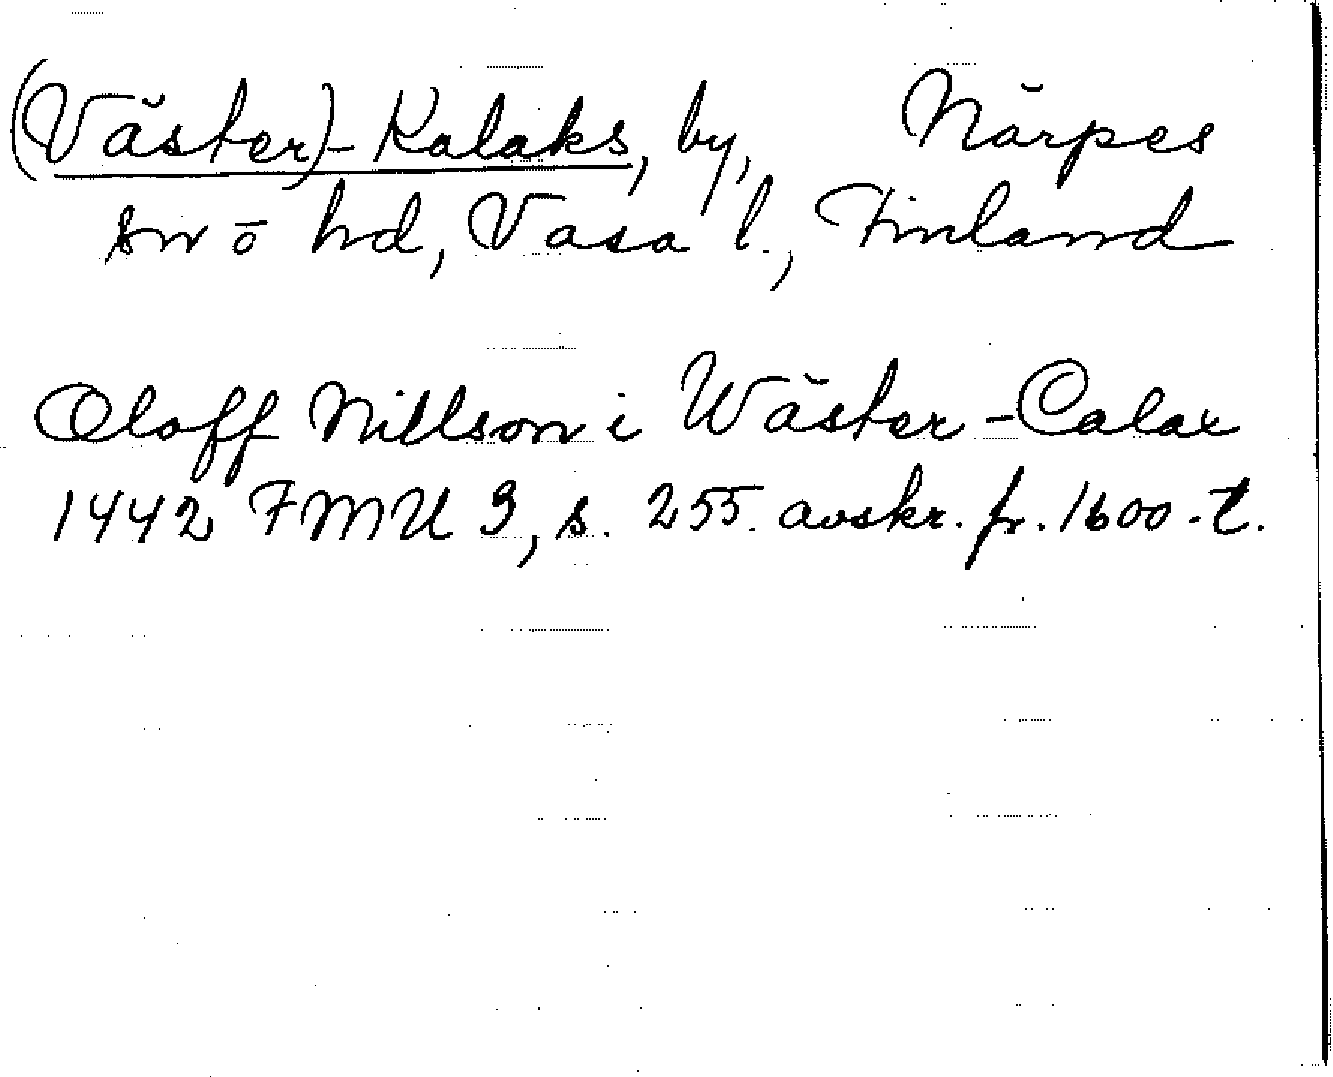 (Väster)-Kalaks, by, Närpes
sn o hd, Vasa l., Finland
Oloff Nillson i Wäster-Calax
1442 FMU 3, s. 255. avskr. fr. 1600-t.